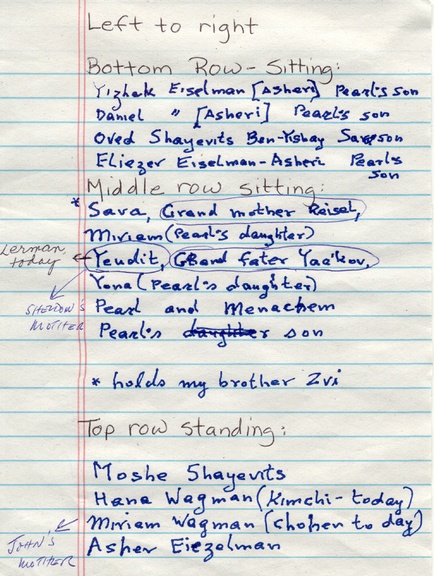 Left to right
Bottom Row - Sitting:
Yizhak Eiselman [Asheri] Pearl's son
Daniel " [Asheri] Pearl's son
Oved Shayevits Ben-Yishay Sara's son
Eliezer Eiselman-Asheri Pearl's
son
Middle row sitting:
* Sara, Grand mother Reisel,
Miriam (Pearl's daughter)
Lerman,
today
Yeudit, GRand fater Yaa'kov,
Yona (Pearl's daughter)
SHELDON'S
MOTHER
Pearl and Menachem
Pearl's daughter son
* holds my brother Zvi
Top row standing:
Moshe Shayevits
Hana Wagman (Kimchi - today)
Miriam Wagman (chohen to day)
JOHN'S
MOTHER
Asher Eiezelman